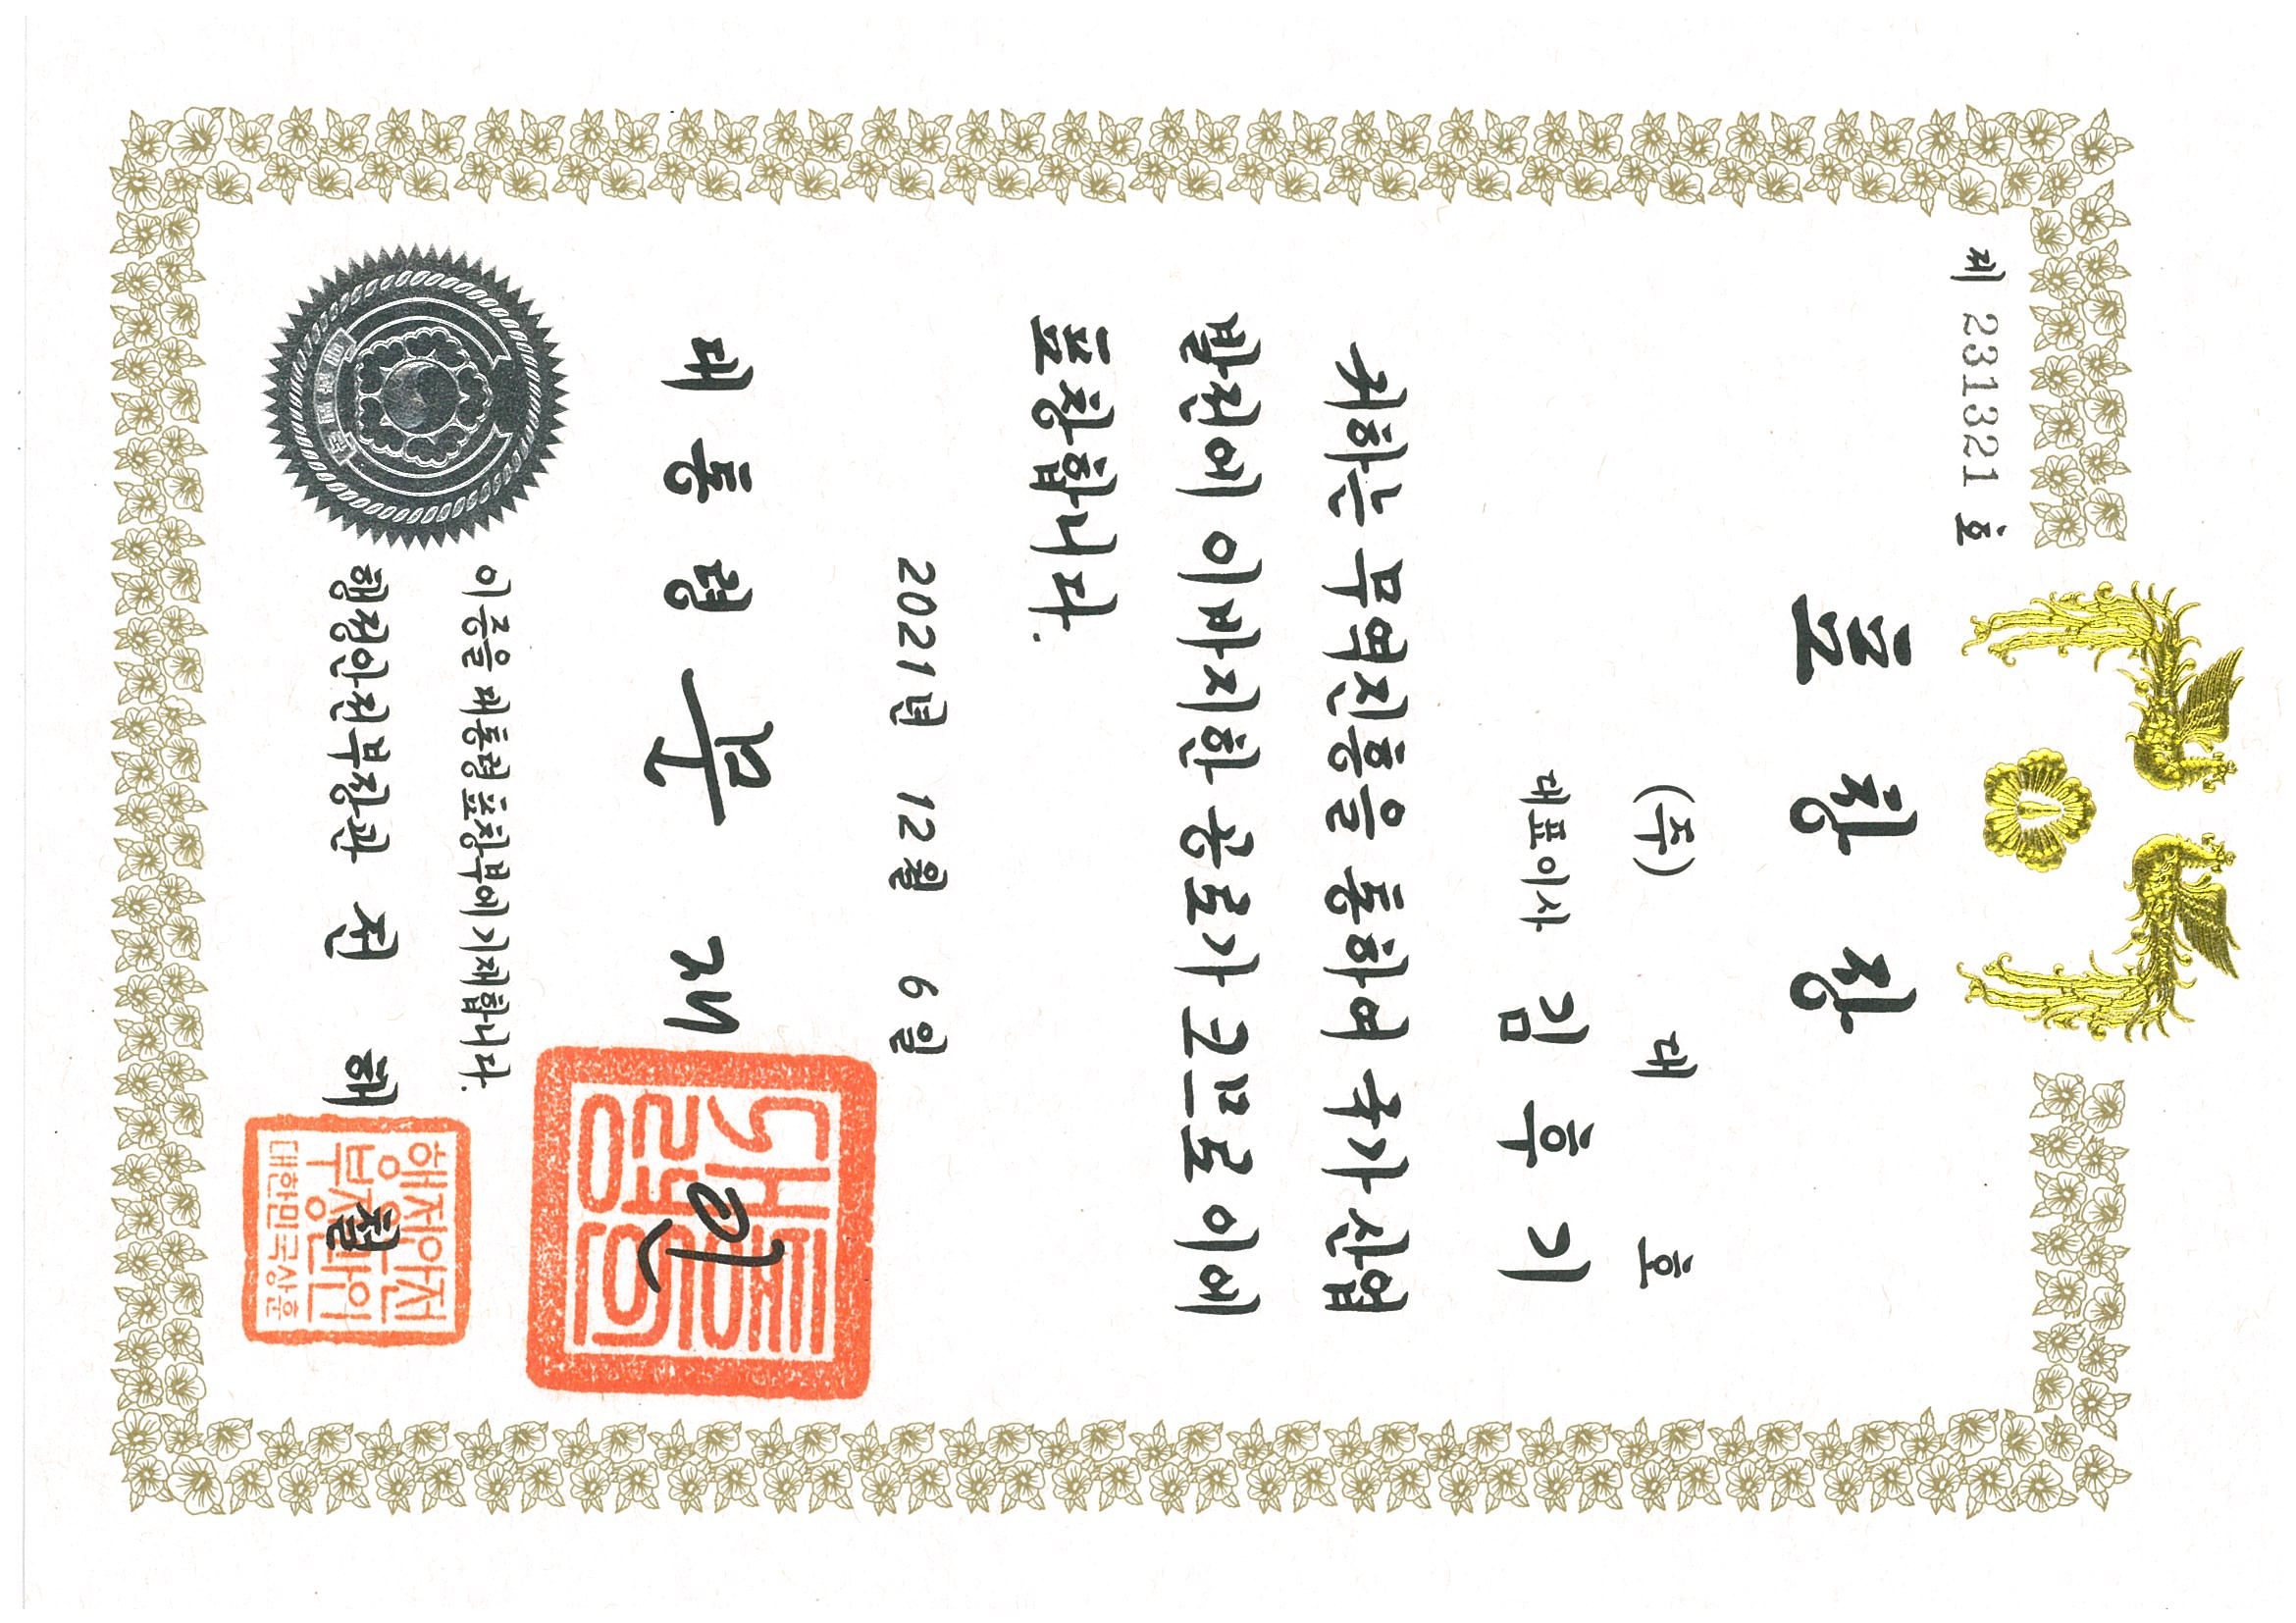 제 231321 호
표 창 장
(주) 대 호
대표이사 김 후 기
귀하는 무역진흥을 통하여 국가 산업
발전에 이바지한 공로가 크므로 이에
표창합니다.
2021년 12월 6일
대 통 령 문 재 인
대통령의인
이 증을 대통령 표창부에 기재합니다.
행정안전부장관 전 해 철
행정안전부장관인
대한민국상훈